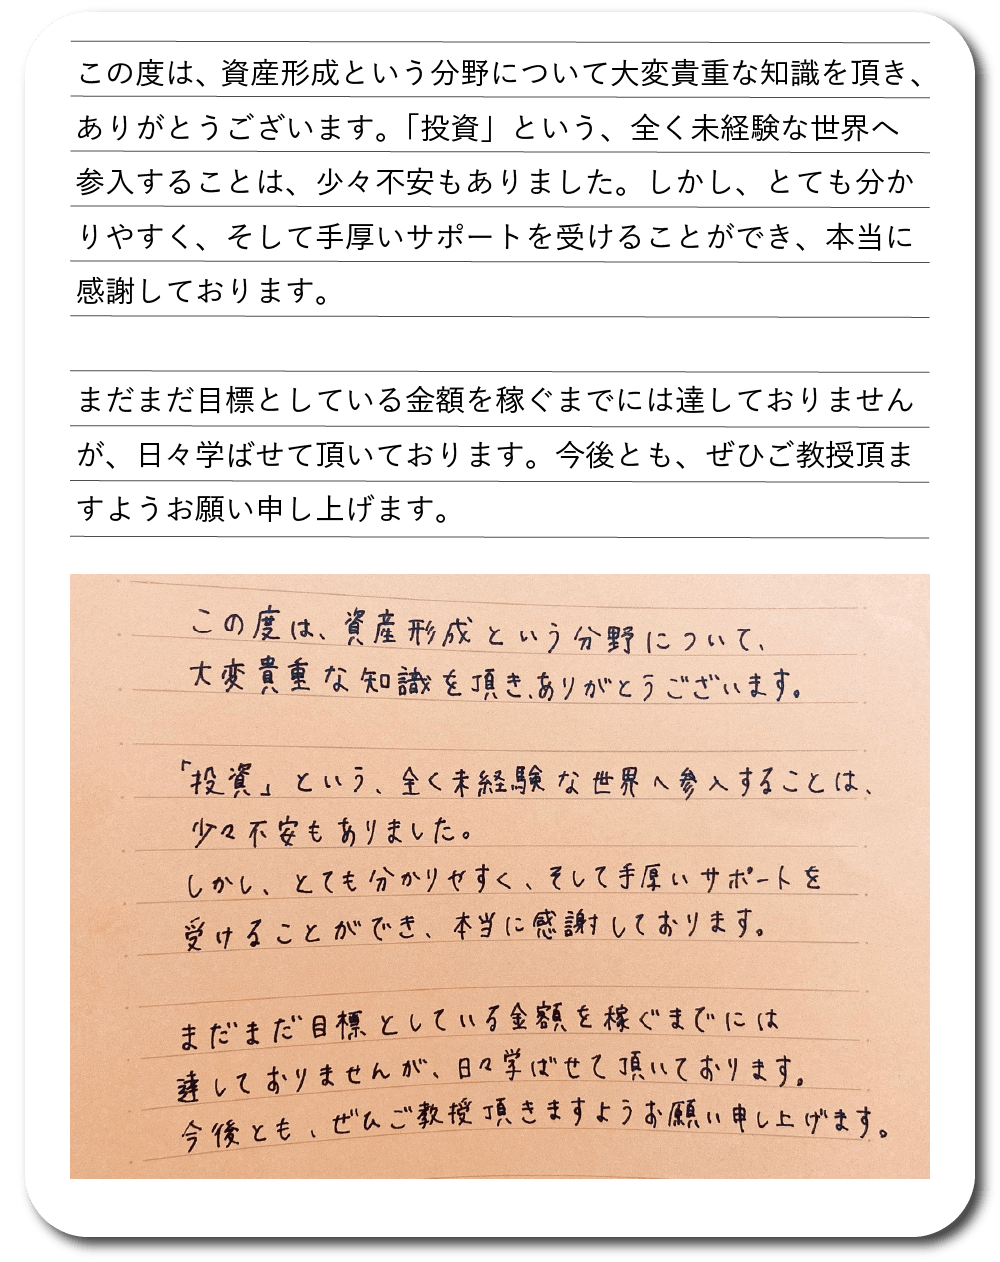 この度は、資産形成という分野について大変貴重な知識を頂き、
ありがとうございます。「投資」という、全く未経験な世界へ
参入することは、少々不安もありました。しかし、とても分か
りやすく、そして手厚いサポートを受けることができ、本当に
感謝しております。
まだまだ目標としている金額を稼ぐまでには達しておりません
が、日々学ばせて頂いております。今後とも、ぜひご教授頂ま
すようお願い申し上げます。
この度は、資産形成という分野について、
大変貴重な知識を頂き、ありがとうございます。
「投資」という、全く未経験な世界へ参入することは、
少々不安もありました。
しかし、とても分かりやすく、そして手厚いサポートを
受けることができ、本当に感謝しております。
まだまだ目標としている金額を稼ぐまでには
達しておりませんが、日々学ばせて頂いております。
今後とも、ぜひご教授頂きますようお願い申し上げます。